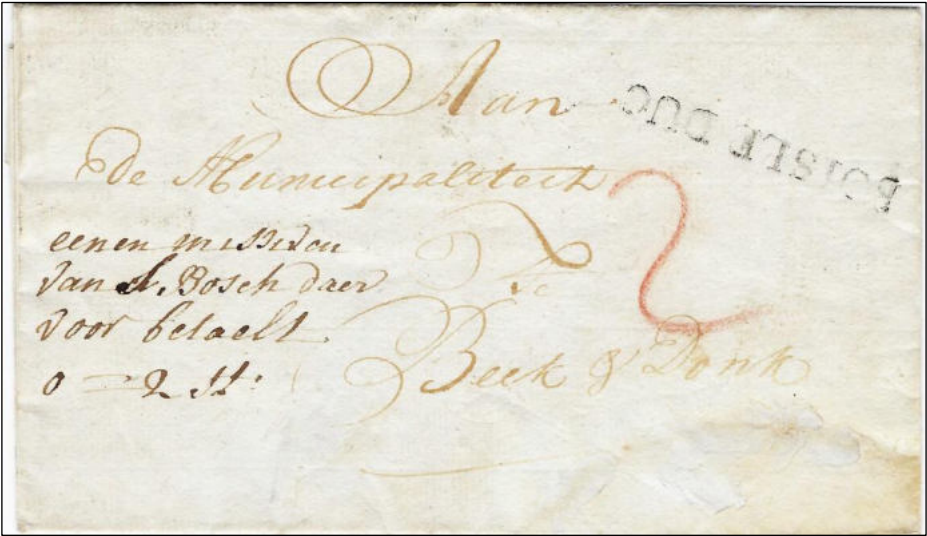 Aan
BOISLE DUC
De Municipaliteit
2
Te
Beek & Donk
eenen missiven
van s, Bosch daer
voor betaelt
0 = 2 st: